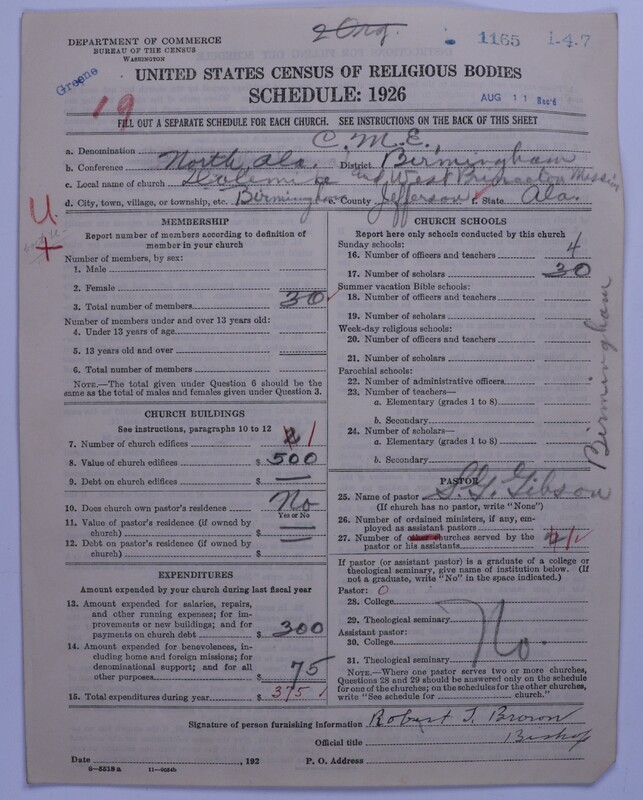 2 Org.
1165 1-4.7
DEPARTMENT OF COMMERCE
BUREAU OF THE CENSUS
WASHINGTON
Greene
UNITED STATES CENSUS OF RELIGIOUS BODIES
SCHEDULE: 1926
AUG 11
19
FILL OUT A SEPARATE SCHEDULE FOR EACH CHURCH. SEE INSTRUCTIONS ON THE BACK OF THIS SHEET
a. Denomination C.M.E.
b. Conference North Ala. District Birmingham
c. Local name of church and West Mission
d. City, town, village, or township, etc. Birmingham e. County Jefferson f. State Ala.
U.
MEMBERSHIP
Report number of members according to definition of
member in your church
Number of members, by sex:
1. Male
2. Female
3. Total number of members 30
Number of members under and over 13 years old:
4. Under 13 years of age
5. 13 years old and over
6. Total number of members
NOTE.—The total given under Question 6 should be
same as the total of males and females given under Question 3.
CHURCH BUILDINGS
See instructions, paragraphs 10 to 12
7. Number of church edifices 1
8. Value of church edifices $ 500
9. Debt on church edifices $ —
10. Does church own pastor's residence? No
Yes or No
11. Value of pastor's residence (if owned by
church) $ —
12. Debt on pastor's residence (if owned by
church) $ —
EXPENDITURES
Amount expended by your church during last fiscal year
13. Amount expended for salaries, repairs,
and other running expenses; for im-
provements or new buildings; and for
payments on church debt $ 300
14. Amount expended for benevolences, in-
cluding home and foreign missions; for
denominational support; and for all
other purposes $ 75
15. Total expenditures during year $ 375
CHURCH SCHOOLS
Report here only schools conducted by this church
Sunday schools:
16. Number of officers and teachers 4
17. Number of scholars 30
Summer vacation Bible schools:
18. Number of officers and teachers
19. Number of scholars
Week-day religious schools:
20. Number of officers and teachers
21. Number of scholars
Parochial schools:
22. Number of administrative officers
23. Number of teachers—
a. Elementary (grades 1 to 8)
b. Secondary
24. Number of scholars—
a. Elementary (grades 1 to 8)
b. Secondary
Birmingham
PASTOR
25. Name of pastor S. G. Gibson
(If church has no pastor, write "None")
26. Number of ordained ministers, if any, em-
ployed as assistant pastors
27. Number of other churches served by the
pastor or his assistants
If pastor (or assistant pastor) is a graduate of a college or
theological seminary, give name of institution below. (If
not a graduate, write "No" in the space indicated.)
Pastor: 0
28. College
29. Theological seminary
Assistant pastor:
30. College
No.
31. Theological seminary
NOTE.—Where one pastor serves two or more churches,
Questions 28 and 29 should be answered only on the schedule
for one of the churches; on the schedules for the other churches,
write "See schedule for church."
Signature of person furnishing information Robert T. Brown
Official title Bishop
Date , 192 P. O. Address